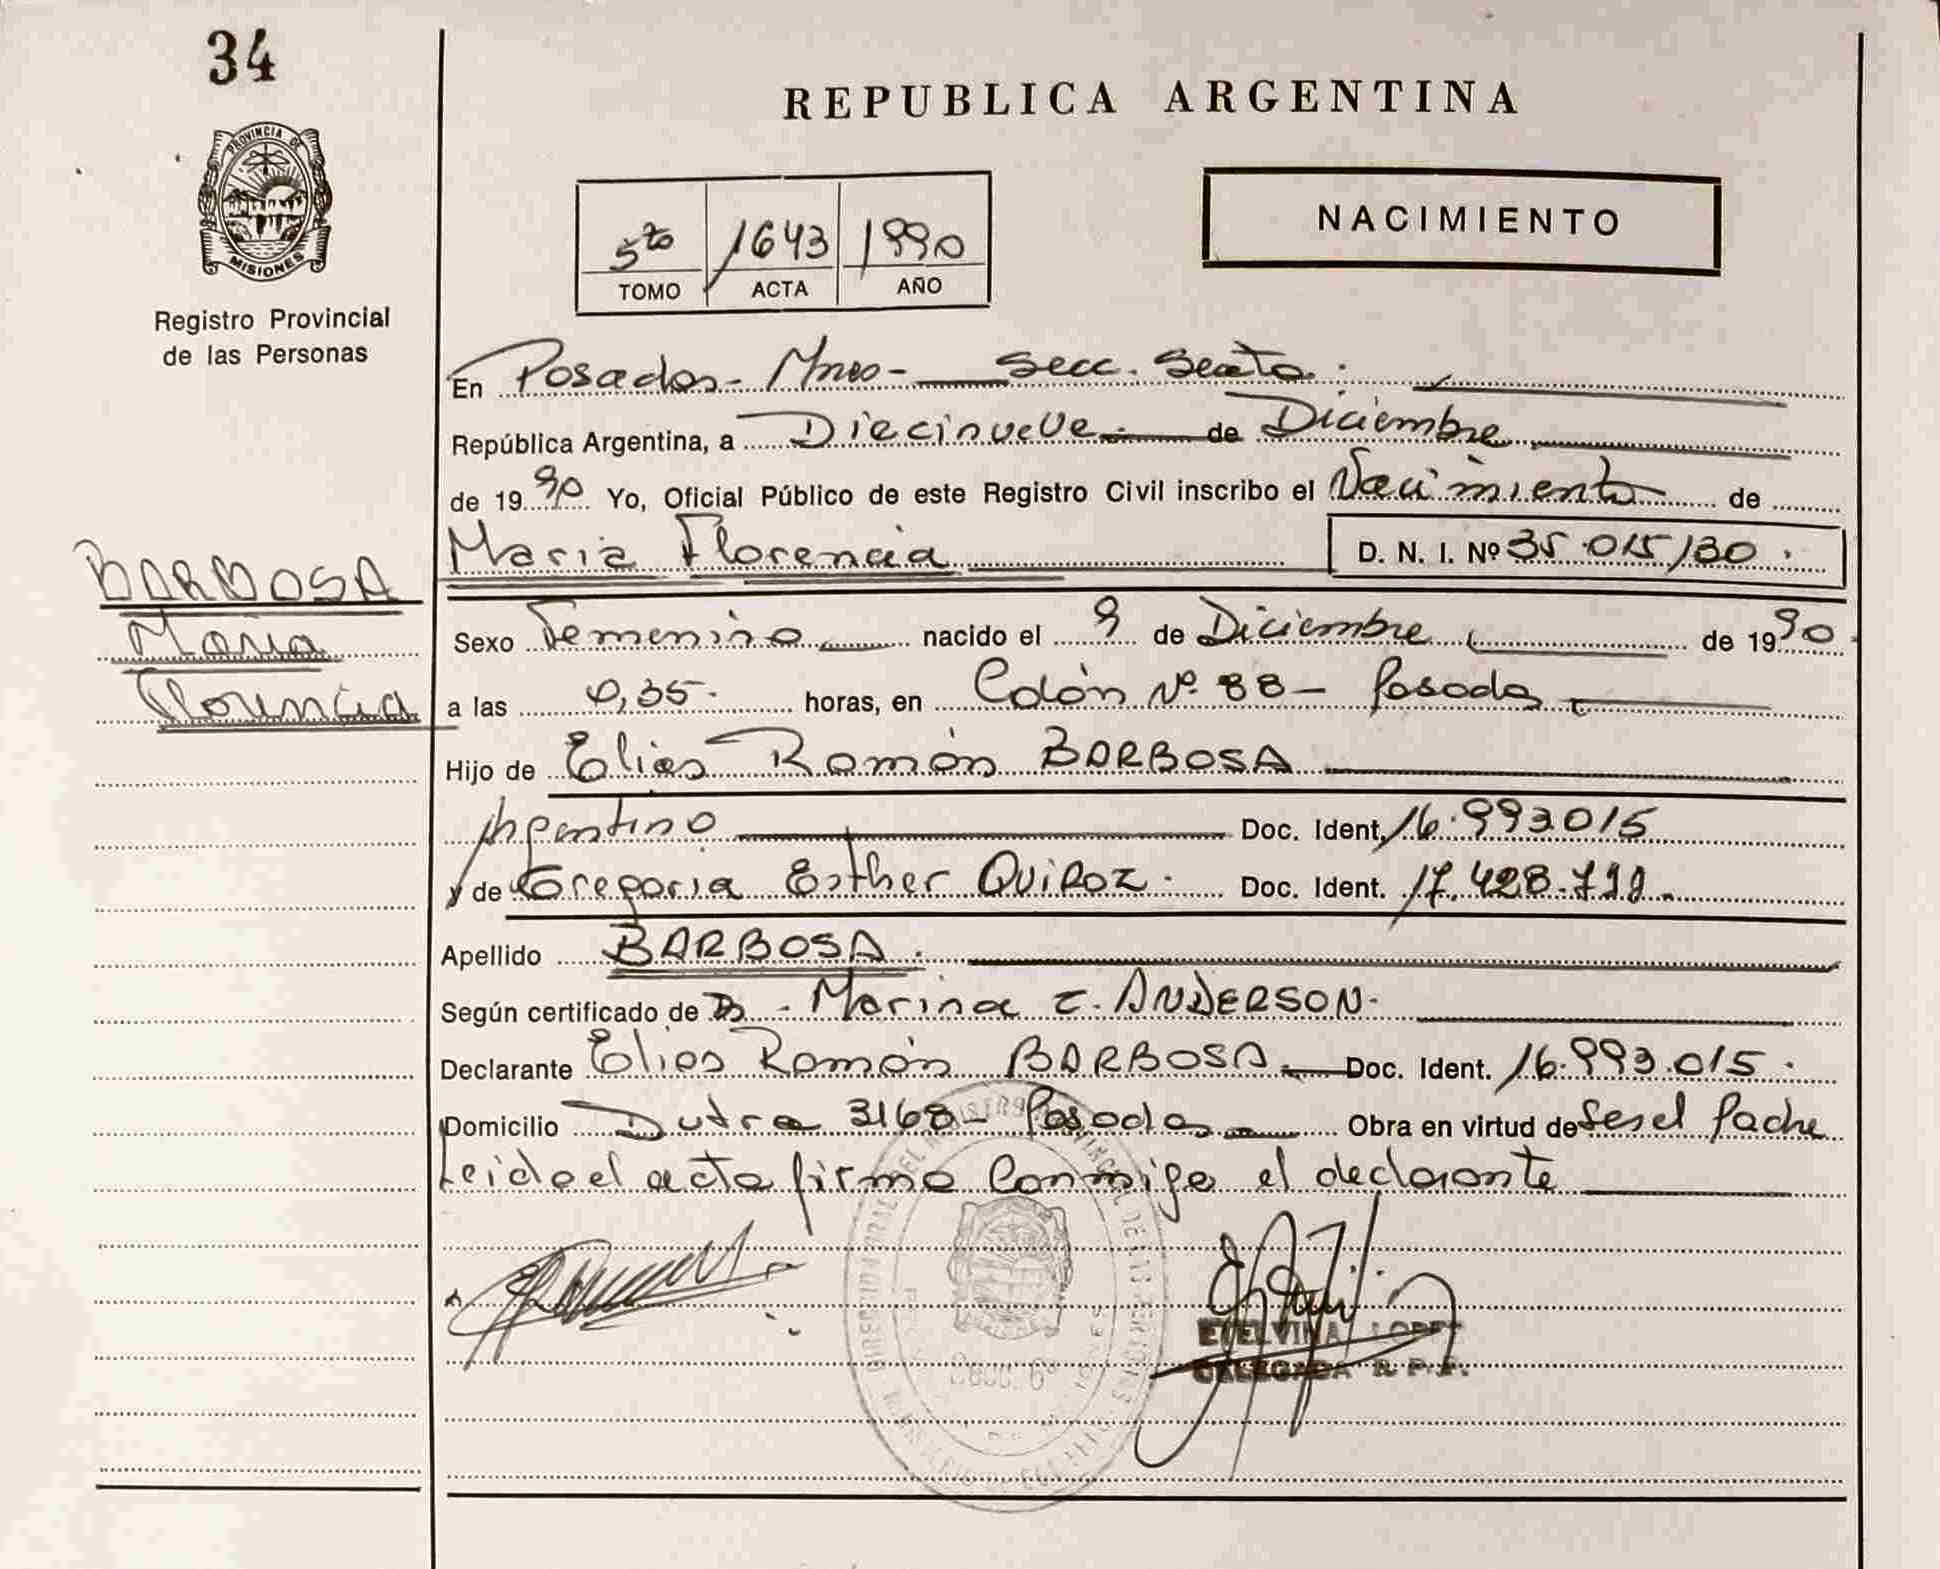 34
REPUBLICA ARGENTINA
PROVINCIA DE
MISIONES
Registro Provincial
de las Personas
5to 1643 1990
TOMO ACTA AÑO
NACIMIENTO
En Posadas - Mnes - Secc. Sexta.
República Argentina, a Diecinueve de Diciembre
de 1990 Yo, Oficial Público de este Registro Civil inscribo el Nacimiento de
Maria Florencia D. N. I. Nº 35.015.130.
BARBOSA
Maria
Florencia
Sexo Femenino nacido el 9 de Diciembre de 1990.
a las 0,35. horas, en Colón Nº 88 - Posadas
Hijo de Elias Ramón BARBOSA
Argentino Doc. Ident. 16.993015
y de Gregoria Esther QUIROZ. Doc. Ident. 17.428.
Apellido BARBOSA.
Según certificado de Marina C. ANDERSON.
Declarante Elias Ramón BARBOSA Doc. Ident. 16.993.015.
Domicilio Dutra 3168 - Posadas Obra en virtud de Ser el Padre
Leida el acta firma conmigo el declarante
ETELVINA LOPEZ
DELEGADA R. P. P.